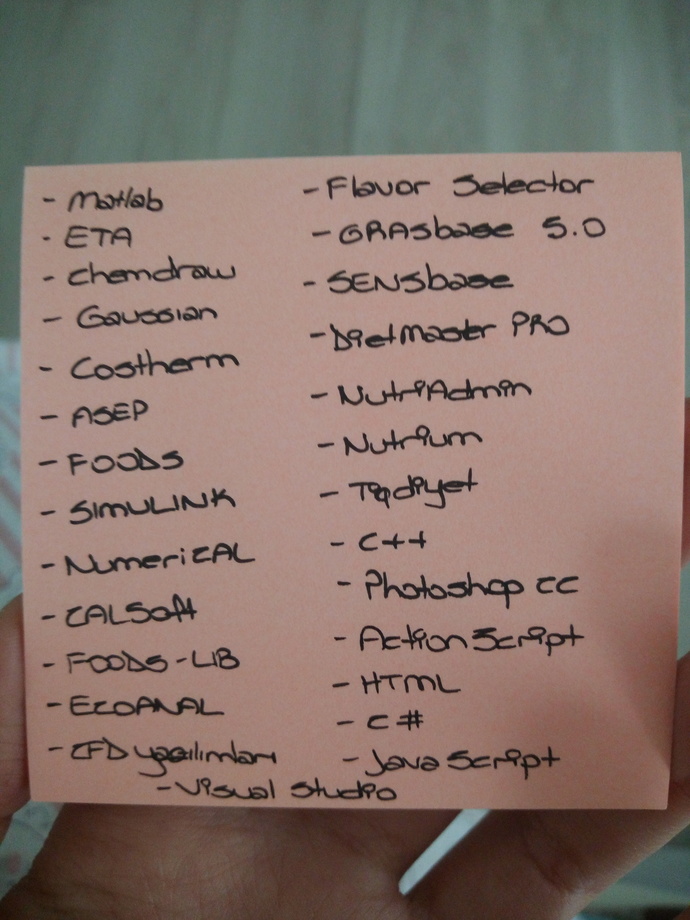 - Matlab
- ETA
- Chemdraw
- Gaussian
- Costherm
- ASEP
- FOODS
- SIMULINK
- NumeriCAL
- CALSoft
- FOODS-LIB
- ECOANAL
- CFD yazılımları
- Visual Studio
- Flavor Selector
- GRASbase 5.0
- SENSbase
- DietMaster PRO
- NutriAdmin
- Nutrium
- Tıqdiyet
- C++
- Photoshop CC
- ActionScript
- HTML
- C#
- JavaScript